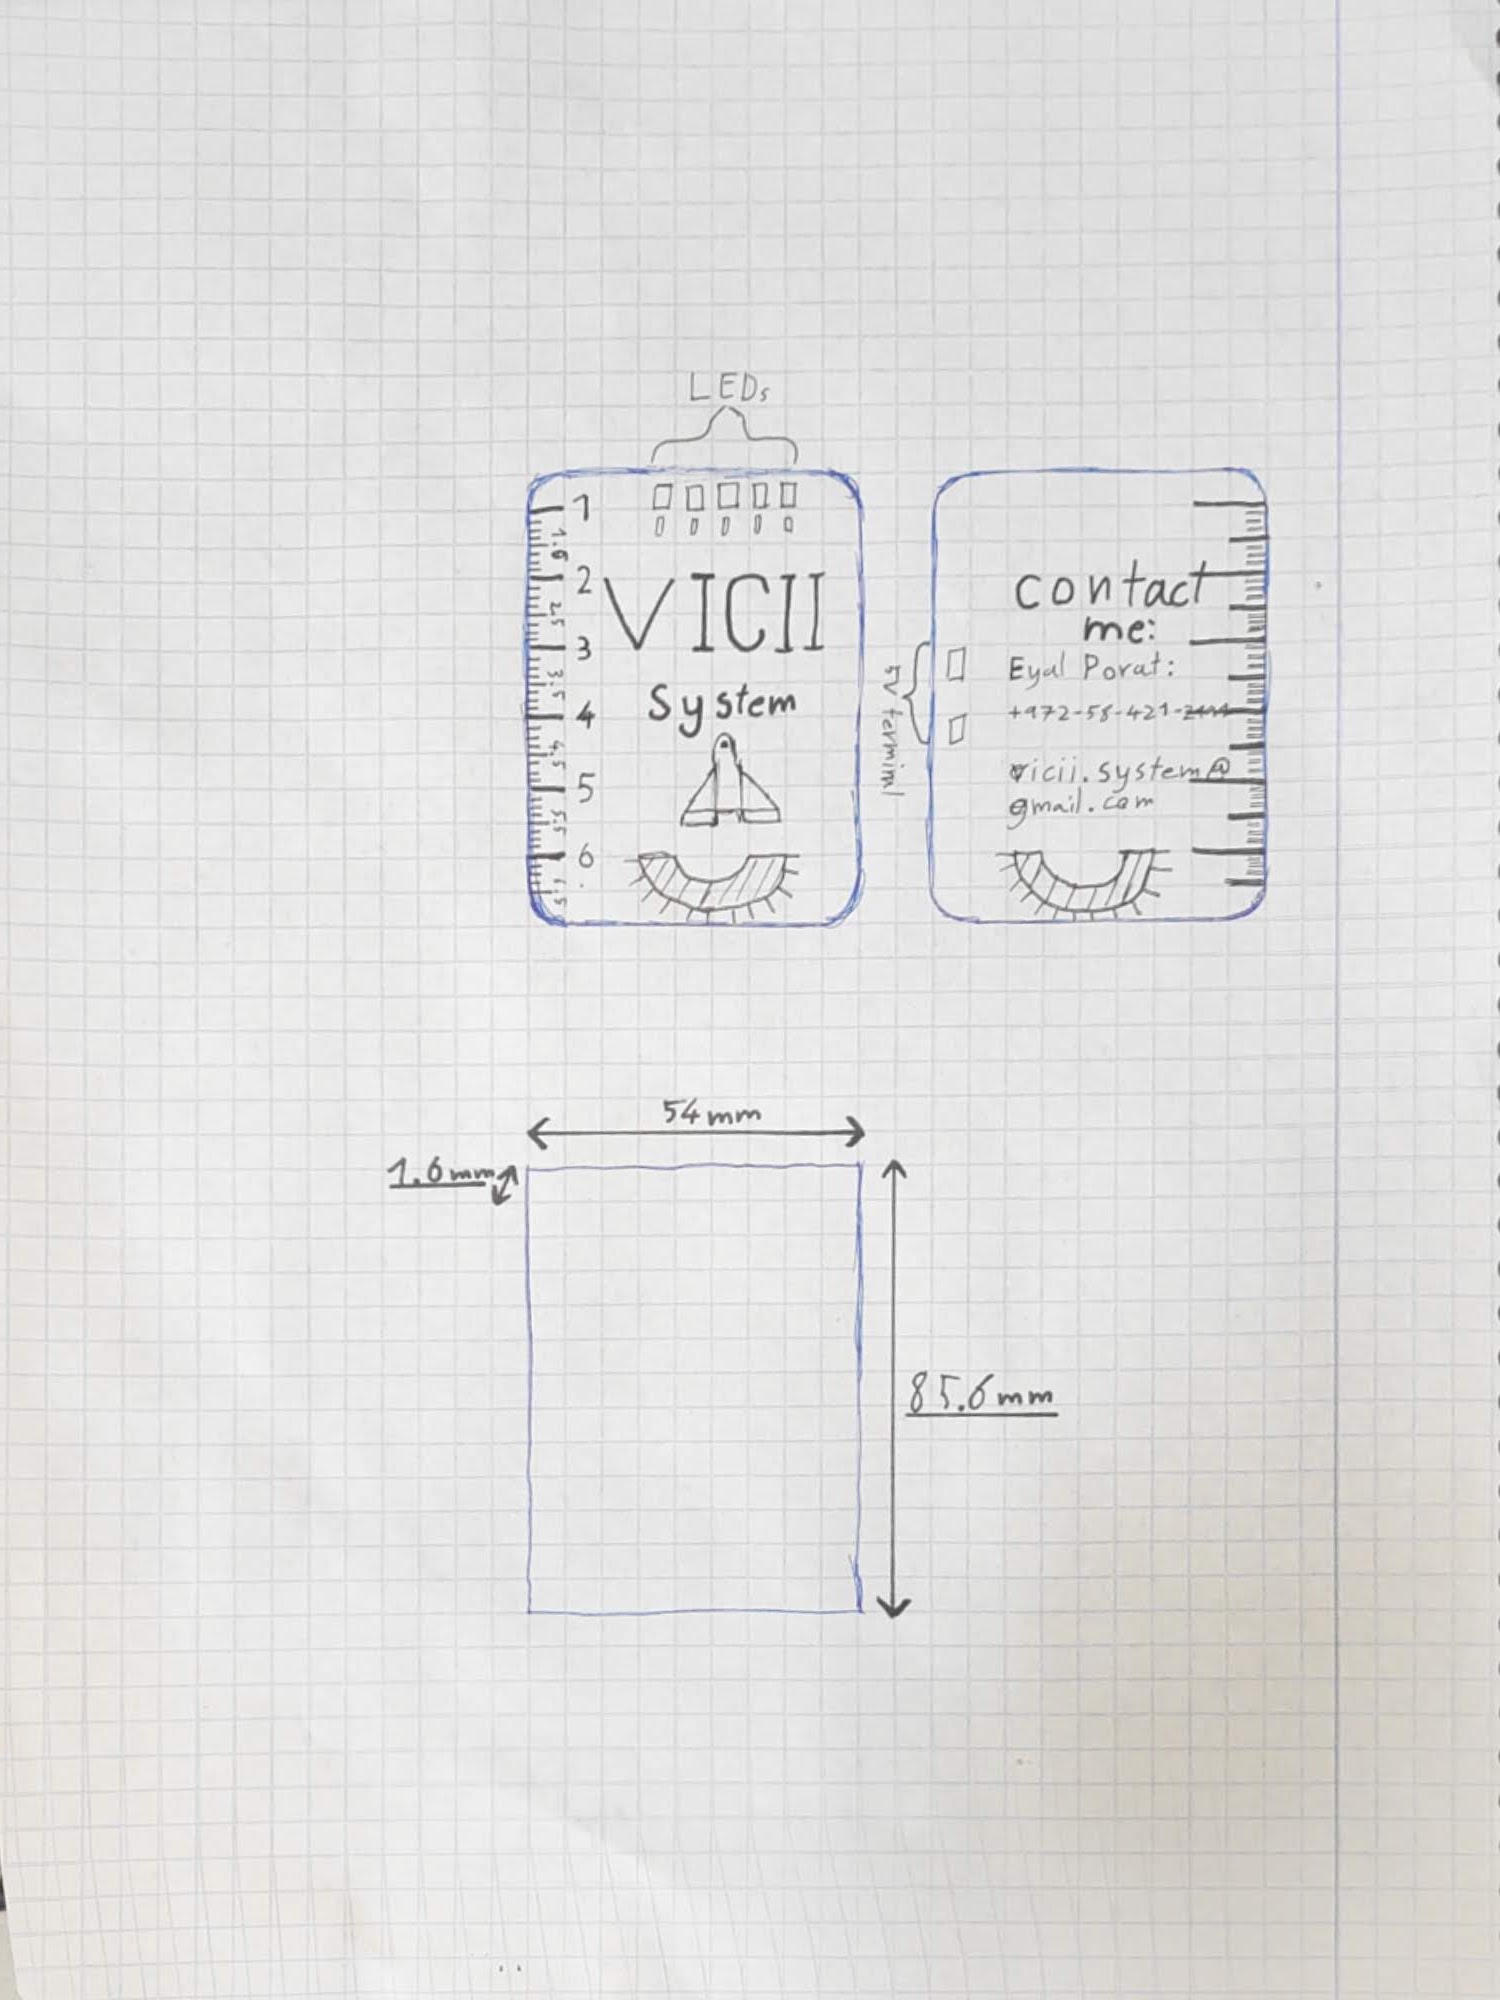 LEDs
1
1.5
2
2.5
3
3.5
4
4.5
5
5.5
6
VICII
System
5V terminal
contact
me:
Eyal Porat:
+972-58-421-
vicii.system@
gmail.com
54mm
1.6mm
85.6mm